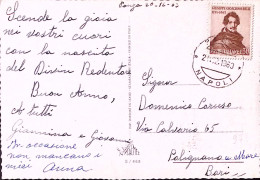 Ponza 20-12-63
Scende la gioia
nei vostri cuori
con la nascita
del Divin Redentore
Buon Anno,
A tutti
Giannina e Giovanni
In occasione
non mancano i
miei
Anna
NAPOLI
Signora
Domenica Caruso
Via Calvario 65
Polignano a Mare
Bari